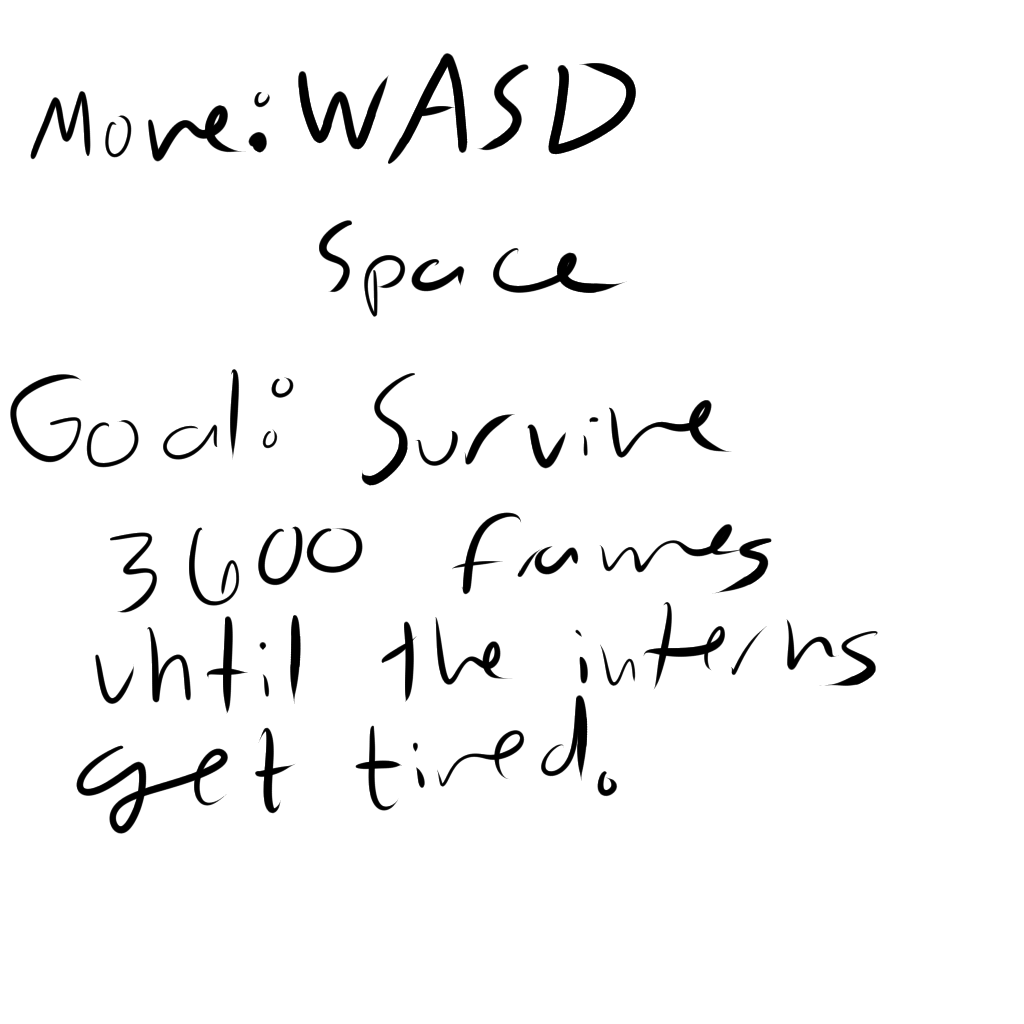 Move: WASD
Space
Goal: Survive
3600 frames
until the interns
get tired.